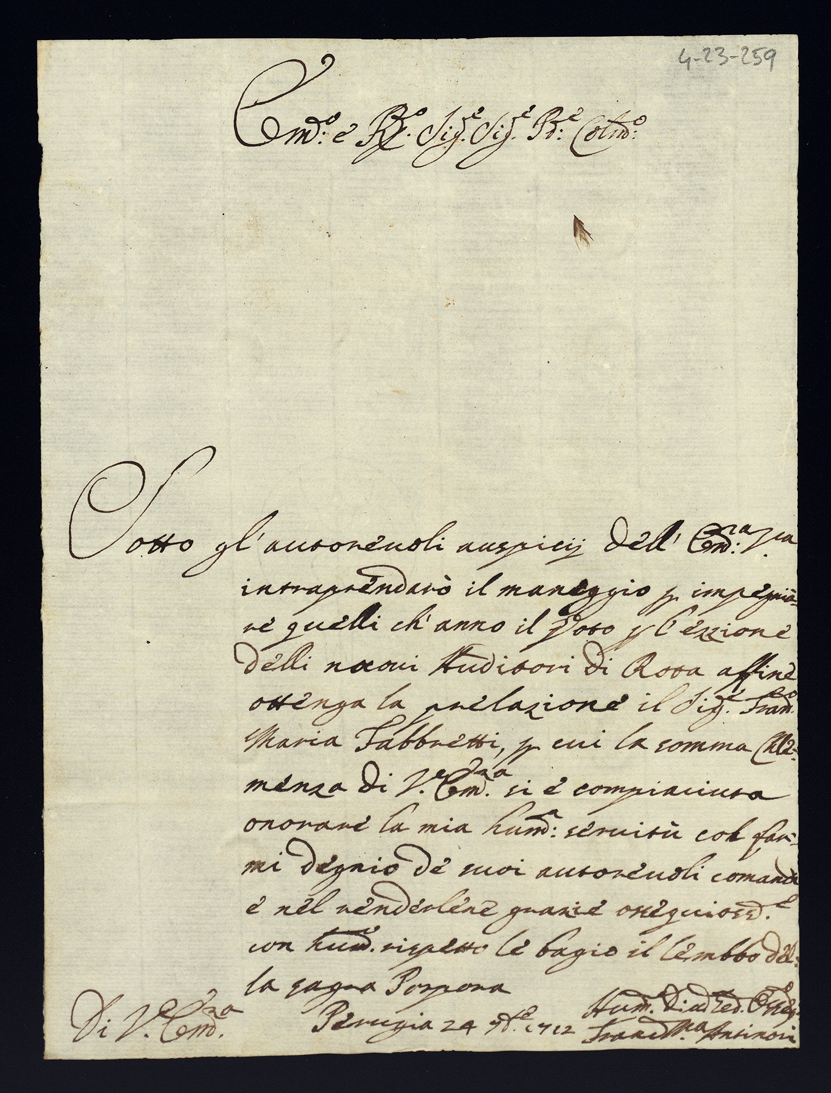 4-23-259
Em̃o: e R. Sig.e Sig.e P.e Colmo:
Sotto gl'autoreuoli auspicij dell' Em̃:za V.ra
intraprendarò il maneggio p impegnia=
re quelli ch'anno il Voto p l'ezzione
delli nuoui Auditori di Rota affinè
ottenga la prelazione il Sig.e Fran.o
Maria Fabbretti, p cui la somma Cle=
menza di V.e Em̃.za si è compiaciuta
onorare la mia hum̃a: seruitù col far=
mi degnio de suoi autoreuoli comandi
e nel renderlene grazie ossequioss.e
con hum̃. rispetto le bagio il lembbo del=
la sagra Porpora
Di V.e Em̃.za Perugia 24 1712 Hum.
Antinori